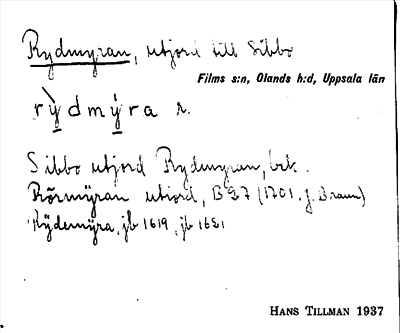 Rydmyran, utjord till Sibbo
Films s:n, Olands h:d, Uppsala län
rỳdmýra r.
Sibbo utjord Rydmyran, brk.
Rörmÿran utiord, B 27 (1701. J. Braun)
Rÿdemÿra, jb 1619, jb 1631
HANS TILLMAN 1937